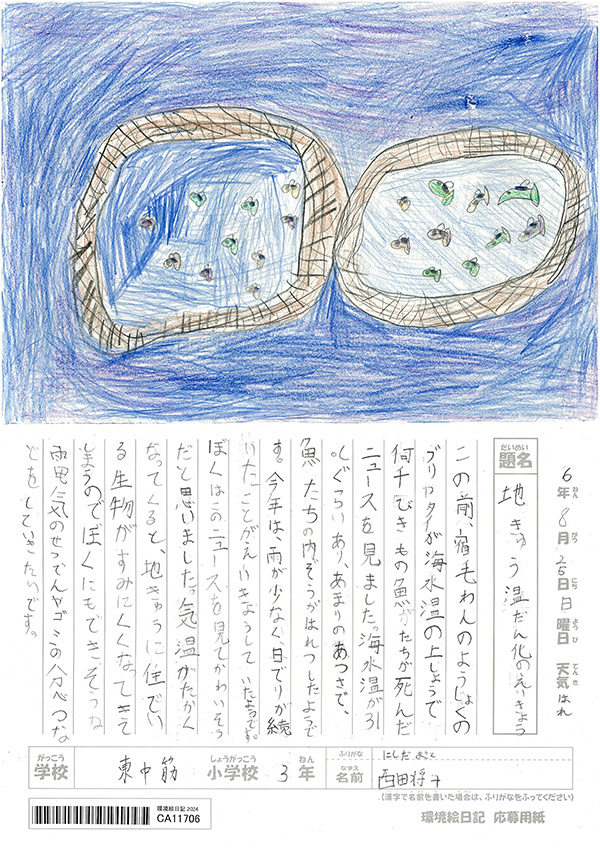 6年8月25日日曜日 天気はれ
ねん がつ にち ようび てんき
だいめい
題名 地きゅう温だん化のえいきょう
この前、宿毛わんのようしょくの
ブリやタイが海水温の上しょうで
何千びきもの魚たちが死んだ
ニュースを見ました。海水温が31
℃ぐらいあり、あまりのあつさで、
魚たちの内ぞうがはれつしたようで
す。今年は、雨が少なく、日でりが続
いたことがえいきょうしていたようです。
ぼくはこのニュースを見てかわいそう
だと思いました。気温がたかく
なってくると、地きゅうに住んでい
る生物がすみにくくなってきて
しまうのでぼくにもできそうな
電気のせつでんやゴミの分べつな
どをしていきたいです。
がっこう しょうがっこう ねん ふりがな にしだ
学校 東中筋 小学校 3年 なまえ 名前 西田将
(漢字で名前を書いた場合は、ふりがなをふってください)
環境絵日記 2024
CA11706
環境絵日記 応募用紙